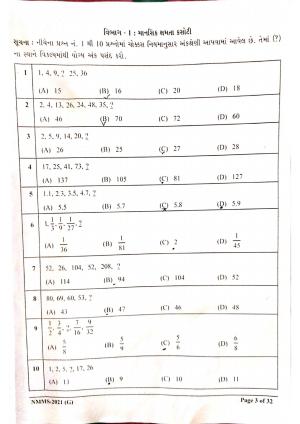 વિભાગ - I : માનસિક ક્ષમતા કસોટી
સૂચના : નીચેના પ્રશ્ન નં. 1 થી 10 પ્રશ્નોમાં ચોક્કસ નિયમાનુસાર અંકશ્રેણી આપવામાં આવેલ છે. તેમાં (?)
ના સ્થાને વિકલ્પમાંથી યોગ્ય અંક પસંદ કરો.
1 1, 4, 9, ? 25, 36
(A) 15 (B) 16 (C) 20 (D) 18
2 2, 4, 13, 26, 24, 48, 35, ?
(A) 46 (B) 70 (C) 72 (D) 60
3 2, 5, 9, 14, 20, ?
(A) 26 (B) 25 (C) 27 (D) 28
4 17, 25, 41, 73, ?
(A) 137 (B) 105 (C) 81 (D) 127
5 1.1, 2.3, 3.5, 4.7, ?
(A) 5.5 (B) 5.7 (C) 5.8 (D) 5.9
6 1, 1/3, 1/9, 1/27, ?
(A) 1/36 (B) 1/81 (C) 2 (D) 1/45
7 52, 26, 104, 52, 208, ?
(A) 114 (B) 94 (C) 104 (D) 52
8 80, 69, 60, 53, ?
(A) 43 (B) 47 (C) 46 (D) 48
9 1/2, 3/4, ?, 7/16, 9/32
(A) 5/8 (B) 5/9 (C) 5/6 (D) 6/8
10 1, 2, 5, ?, 17, 26
(A) 13 (B) 9 (C) 10 (D) 11
NMMS-2021 (G) Page 3 of 32